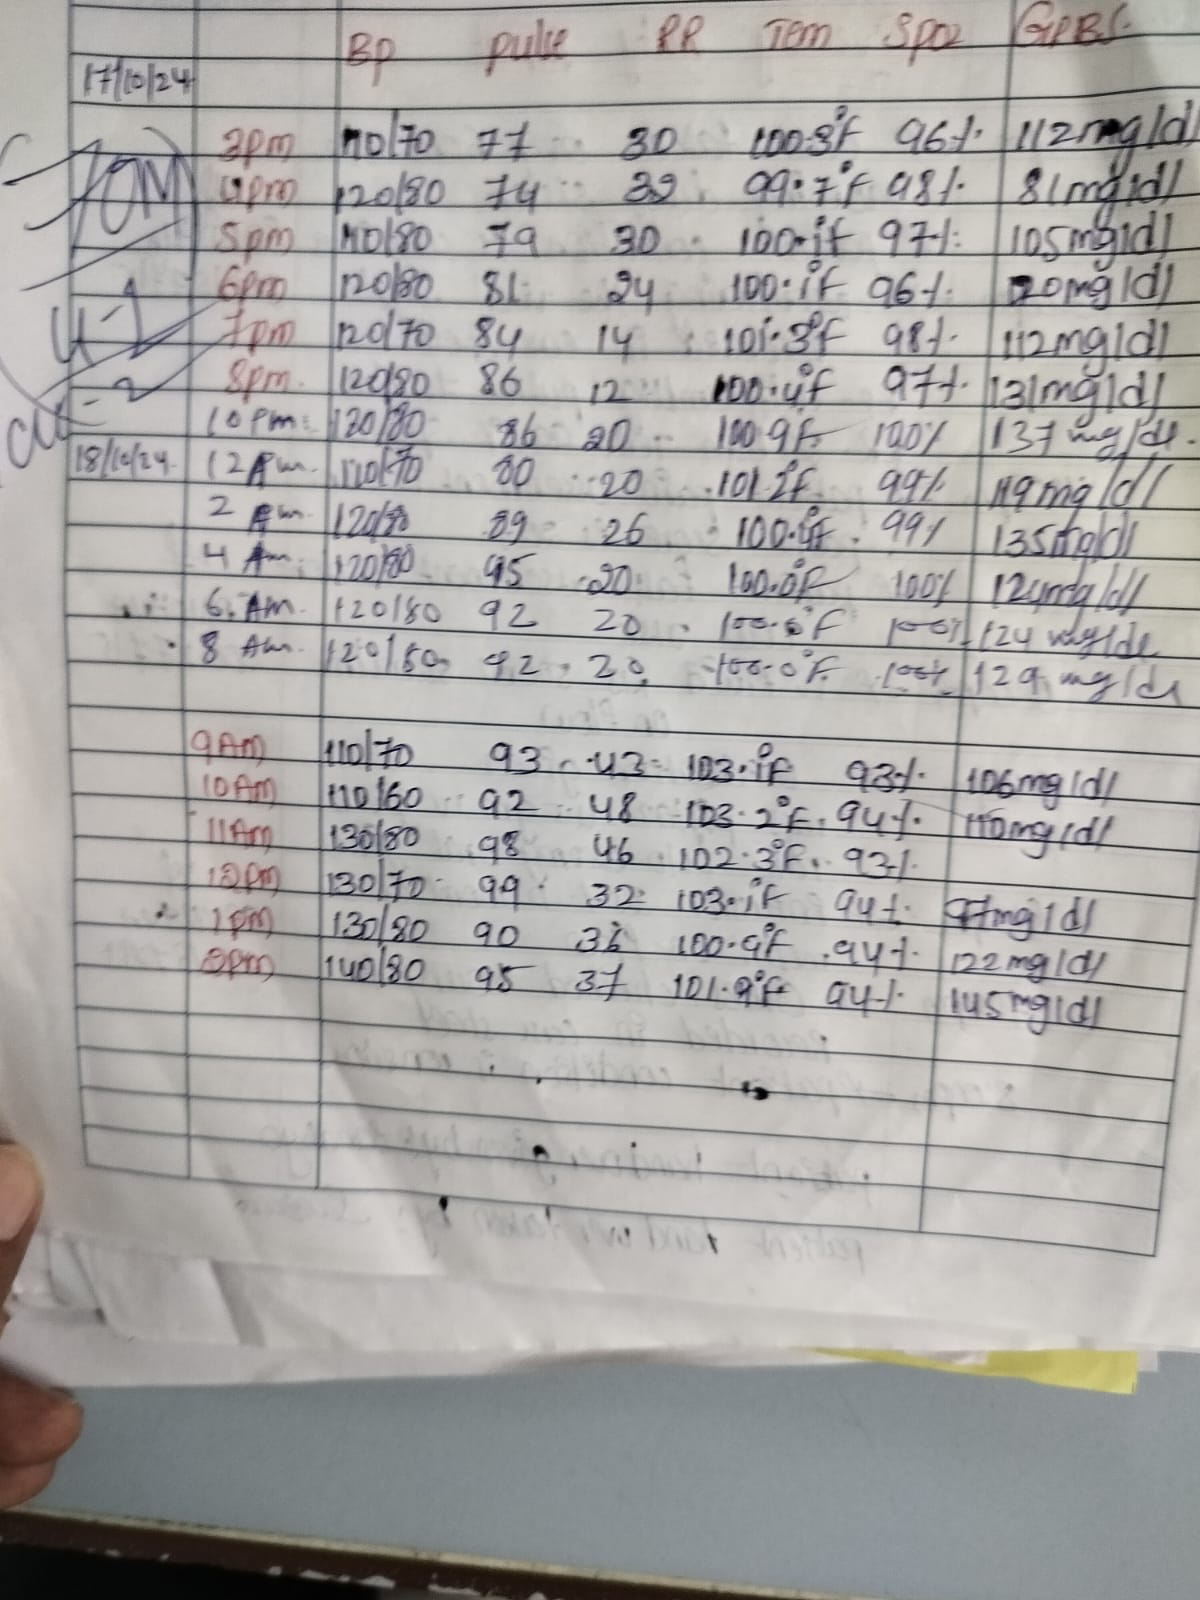 Bp pulse RR Tem Spo2 GRBS
17/10/24
3pm 110/70 77 30 100.3°F 96% 112mg/dl
4pm 120/80 74 32 99.7°F 98% 81mg/dl
5pm 110/80 79 30 100.1f 97% 105mg/dl
6pm 120/80 81 24 100.1f 96% 120mg/dl
7pm 120/70 84 14 101.3°F 98% 112mg/dl
8pm 120/80 86 12 100.4°f 97% 131mg/dl
10 pm 120/80 86 20 100.9f 100% 137 mg/dl
18/10/24 12 Am 110/70 80 20 101.2f 99% 119mg/dl
2 Am 120/80 89 26 99% 135mg/dl
4 Am 120/80 95 20 100.0°F 100% 124mg/dl
6 AM 120/80 92 20 100.0°F 100% 124 mg/dl
8 Am 120/80 92 20 100.0°F 100% 129 mg/dl
9AM 110/70 93 43 103.1°F 93% 106mg/dl
10Am 110/60 92 48 103.2°F 94% 110mg/dl
11Am 130/80 98 46 102.3°F 93%
12pm 130/70 99 32 103.1f 94% mg/dl
1pm 130/80 90 100.9°F 94% 122mg/dl
2pm 140/80 95 37 101.9°F 94% 145mg/dl